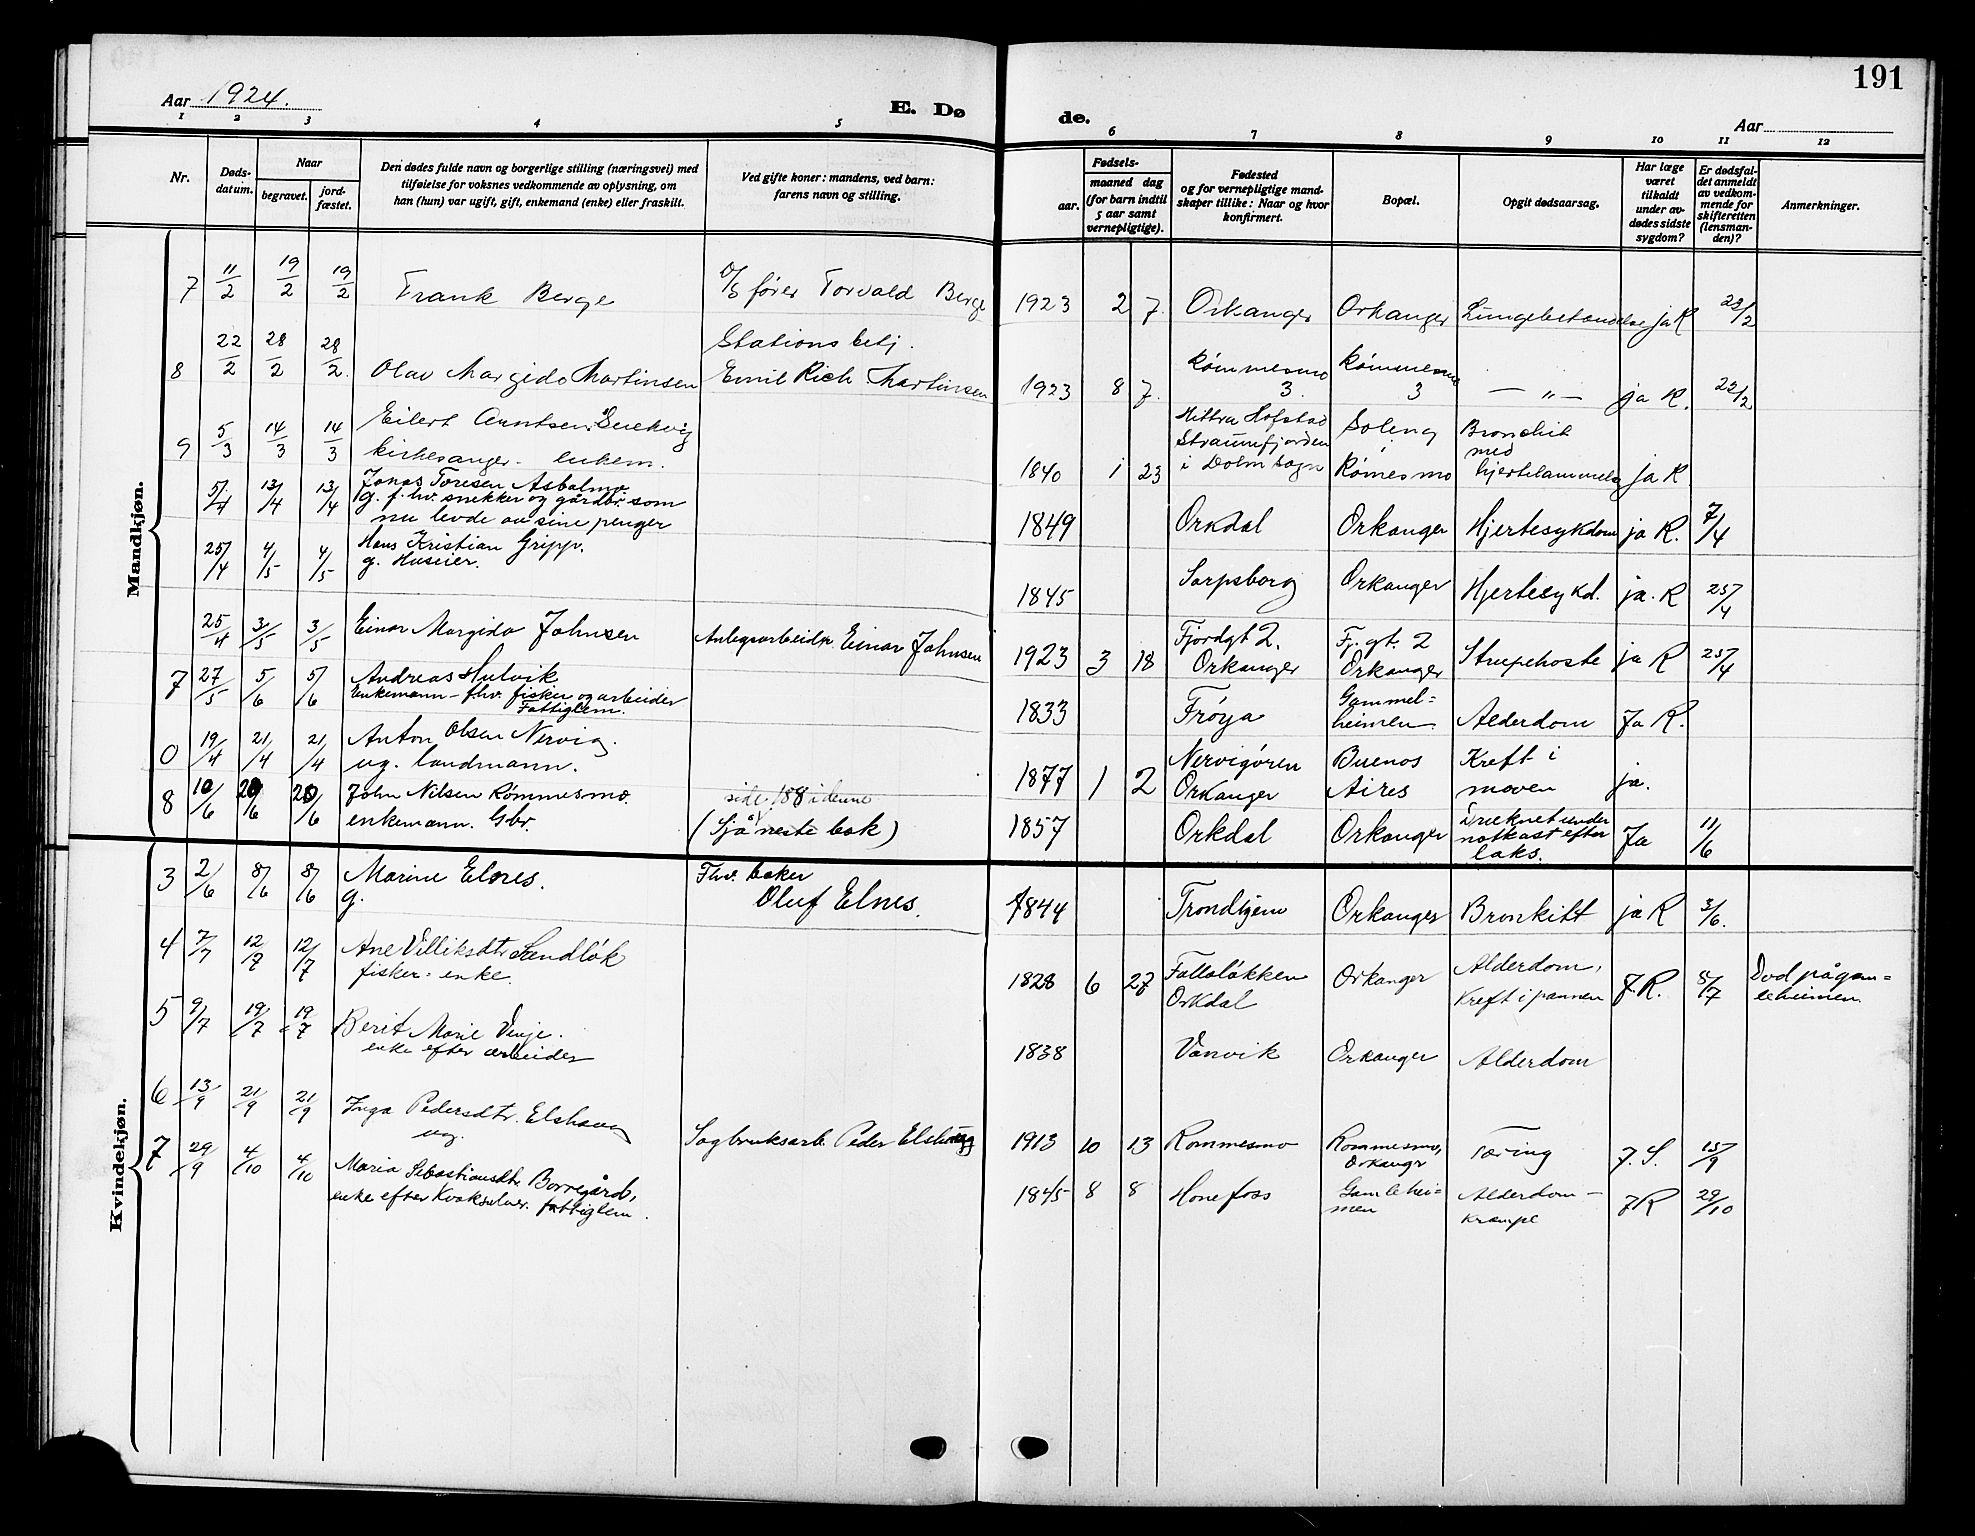 191
Aar 1924.
E. Dø
de.
Aar
1 2 3 4 5 6 7 8 9 10 11 12
Nr.
Døds-
datum.
Naar
begravet.
jord-
fæstet.
Den dødes fulde navn og borgerlige stilling (næringsvei) med
tilføielse for voksnes vedkommende av oplysning, om
han (hun) var ugift, gift, enkemand (enke) eller fraskilt.
Ved gifte koner: mandens, ved barn:
farens navn og stilling.
Fødsels-
aar.
maaned dag
(for barn indtil
5 aar samt
vernepligtige).
Fødested
og for vernepligtige mand-
skaper tillike: Naar og hvor
konfirmert.
Bopæl.
Opgit dødsaarsag.
Har læge
været
tilkaldt
under av-
dødes sidste
sygdom?
Er dødsfal-
det anmeldt
av vedkom-
mende for
skifteretten
(lensman-
den)?
Anmerkninger.
Mandkjøn.
7 11/2 19/2 19/2 Frank Berge fører Torvald Berge 1923 2 7. Orkanger Orkanger ja R 22/2
Stationsbetj.
8 22/2 28/2 28/2. Olav Margido Martinsen Emil Rich Martinsen 1923 8 7. Rømmesmo 3. Rømmesmo 3 — „ — ja R. 22/2
9 5/3 14/3 14/3 Eilert Arntsen
kirkesanger. enkem. 1840 1 23 Hittra Hofstad
Straumfjorden
i Dolm sogn
Soleng
Rømesmo
Bronchit
med
hjertelammelse ja R
5/4 13/4 13/4 Jonas Toresen Asbølmo
g. f. hv. snekker og gårdbr. som
nu levde av sine penger 1849 Orkdal Orkanger Hjertesykdom ja R. 7/4
25/4 4/5 4/5 Hans Kristian Gripp.
g. Huseier. 1845 Sarpsborg Orkanger Hjertesykd. ja. R 25/4
25/4 3/5 3/5 Einar Margido Johnsen Anlegsarbeidr. Einar Johnsen 1923 3 18 Fjordgt 2.
Orkanger
Fj. gt. 2
Orkanger Strupehoste ja R 25/4
7 27/5 5/6 5/6 Andreas Hulvik
Enkemann - fhv. fisker og arbeider
Fattiglem. 1833 Frøya Gammel=
heimen Alderdom Ja R.
0 19/4 21/4 21/4 Anton Olsen Nervig.
ug. landmann. 1877 1 2 Nervigøren
Orkanger
Buenos
Aires
Kreft i
maven ja.
8 10/6 20/6 20/6 John Nilsen Rømmesmo.
enkemann. Gbr.
side 188 i denne
(Sjå neste bok) 1857 Orkdal Orkanger Druknet under
notkast efter
laks. Ja 11/6
Kvindekjøn.
3 2/6 8/6 8/6 Marine Elnes.
g.
Fhv. baker
Oluf Elnes. 1844 Trondhjem Orkanger Bronkitt ja R 3/6.
4 7/7 12/7 12/7 Ane Villiksdtr Sandløk
fisker= enke. 1828 6 27 Follaløkken
Orkdal Orkanger Alderdom,
Kreft i pannen J. R. 8/7 Død på gam=
leheimen.
5 9/7 19/7 19/7 Berit Marie Vinje.
enke efter arbeider 1838 Vanvik Orkanger Alderdom
6 13/9 21/9 21/9 Inga Pedersdtr. Elshaug
ug. Sagbruksarb. Peder Elshaug 1913 10 13 Rommesmo Rommesmo,
Orkanger Tæring J. S. 15/9
7 29/9 4/10 4/10 Maria Sebastiansdtr Borregård,
enke efter Kvaksalver. fattiglem. 1845 8 8 Hønefoss Gamlehei-
men Alderdom –
krampe J R 29/10